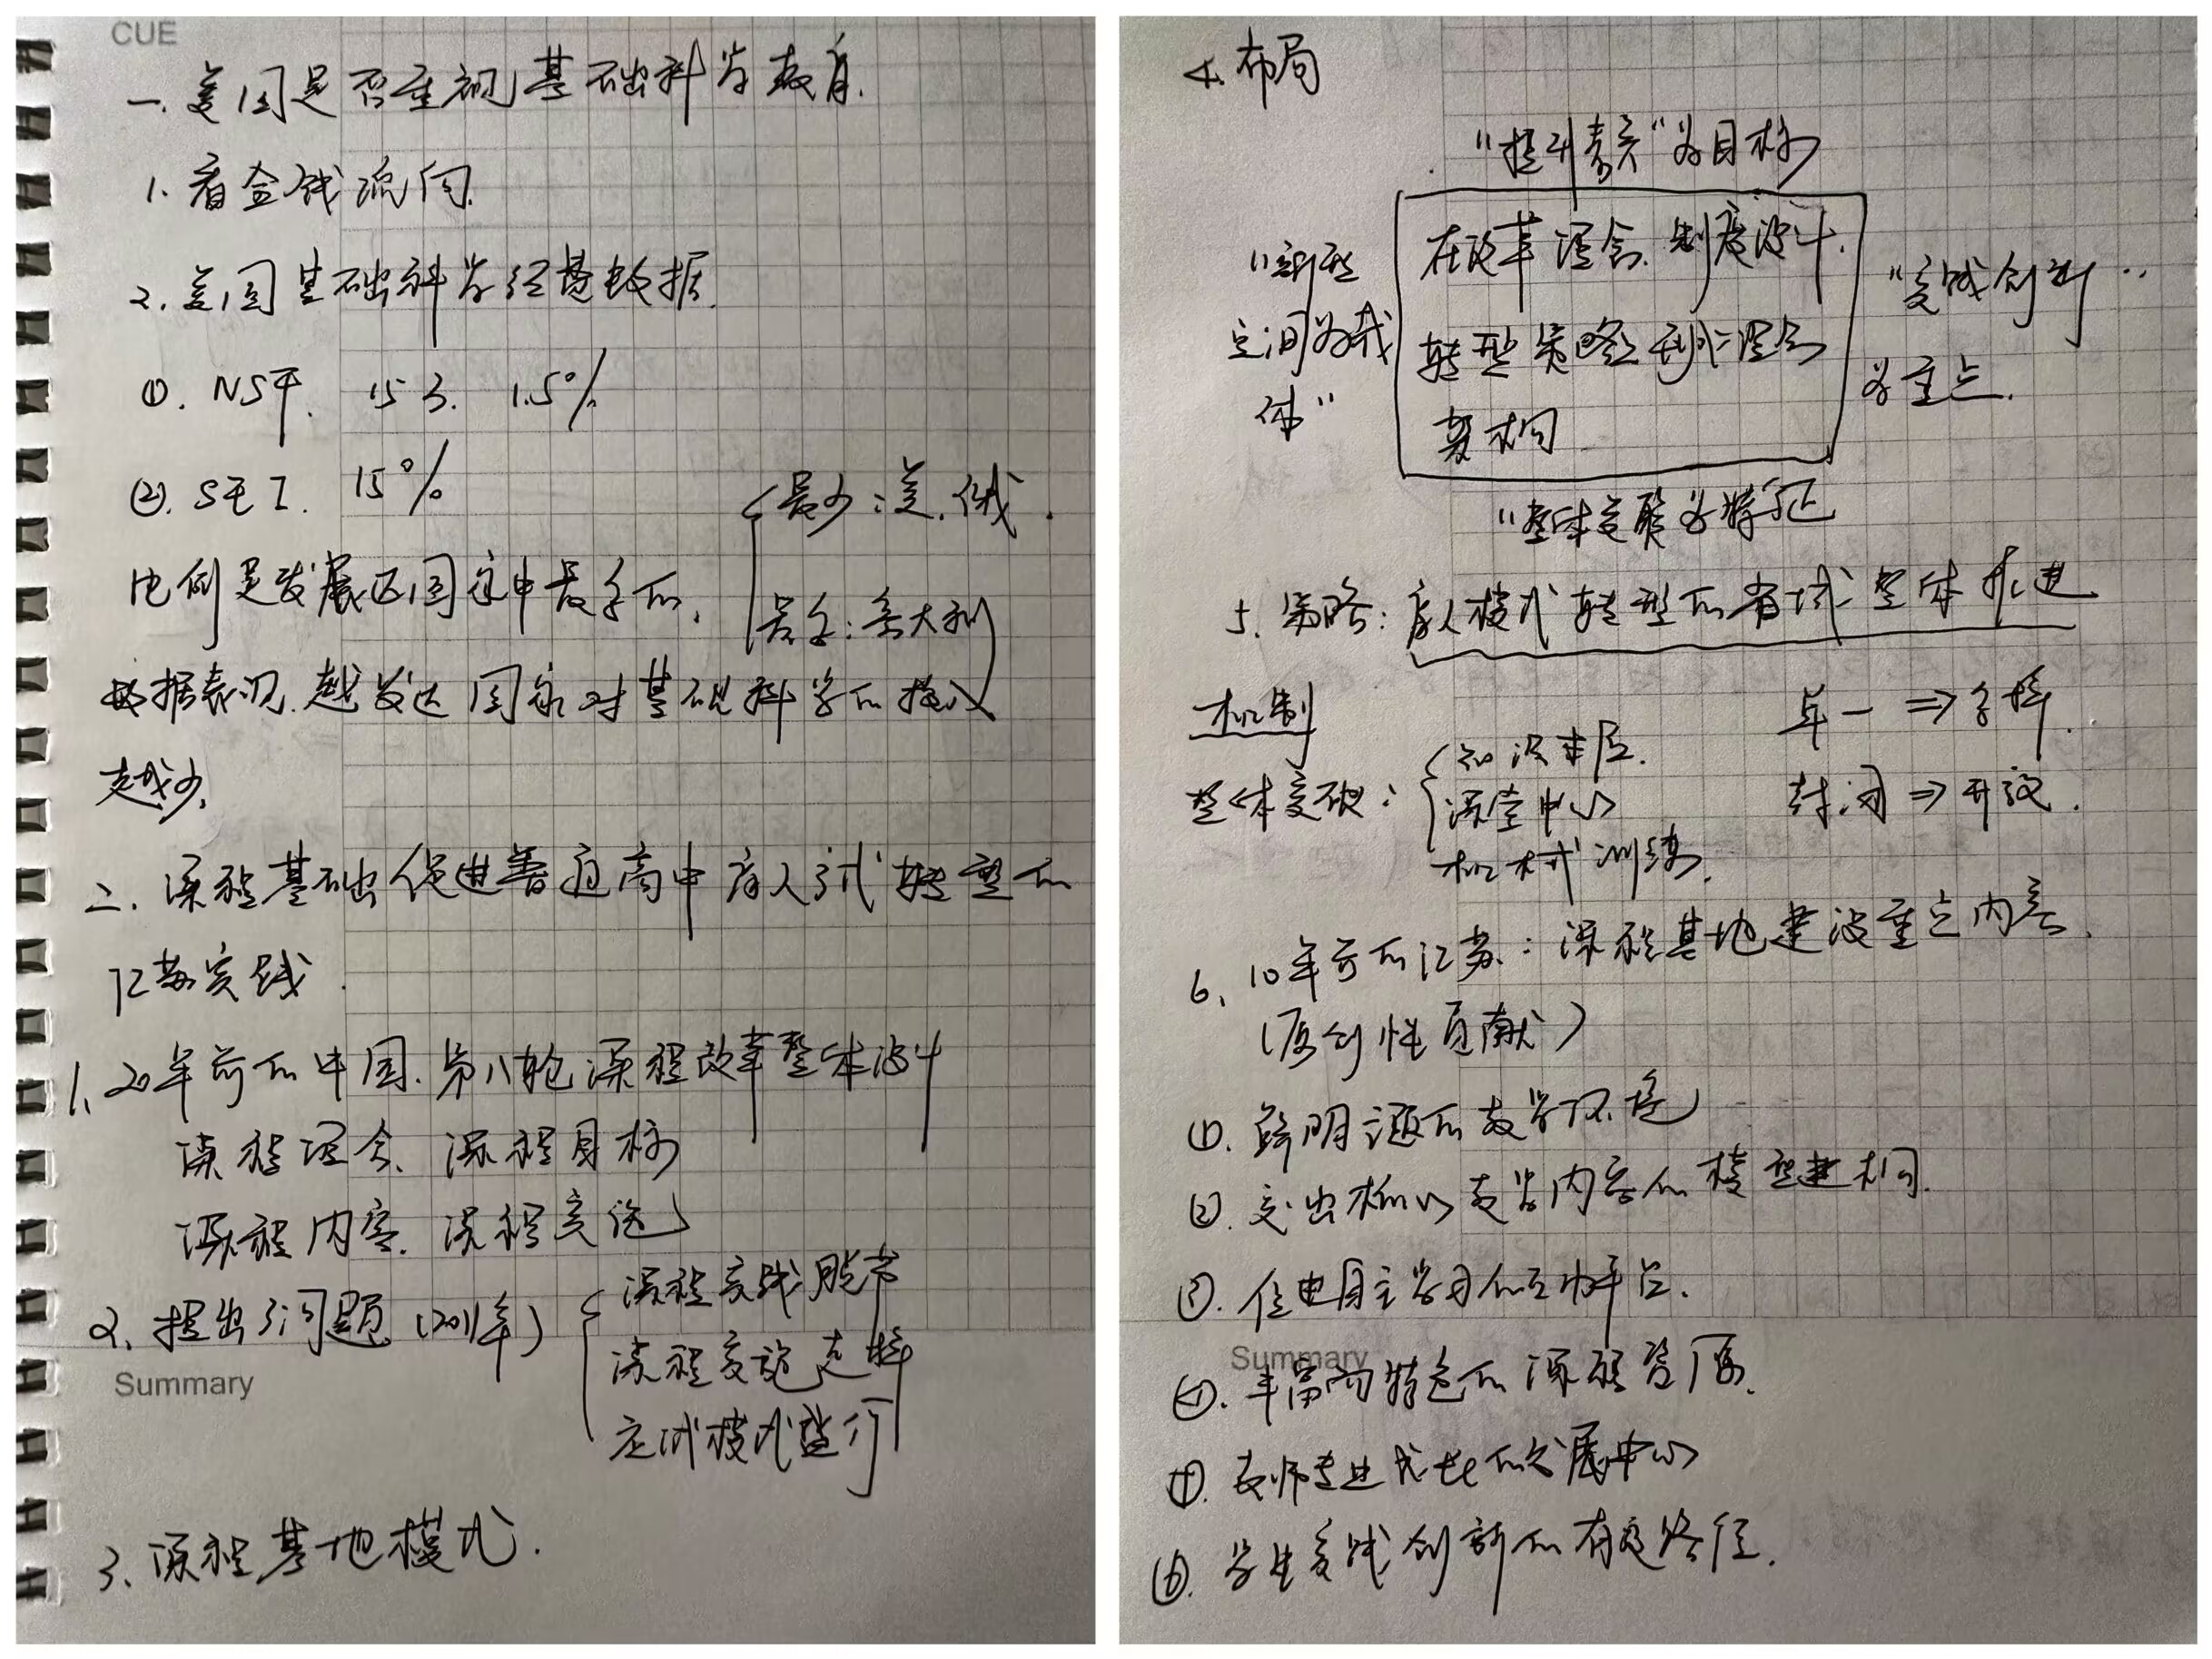 CUE
一、美国是否重视基础科学教育.
1. 看金钱流向.
2. 美国基础科学经费数据.
①. NSF. 15 3. 1.5%
②. SEI. 15%
最少:美.俄.
比例是发展区国家中最多的.
最多:意大利
数据表明.越发达国家对基础科学的投入
越少.
二、课程基础促进普通高中育人方式转型的
江苏实践.
1、20年前的中国.第八轮课程改革整体设计
课程理念、课程目标
课程内容.课程实施
2、提出了问题(2011年)
课程实践脱节
课程实施走样
应试模式盛行
Summary
3、课程基地模式.
4. 布局
"提升素养"为目标
"新型
空间为载
体"
在改革理念.制度设计.
转型策略到
架构
"实践创新"
为重点.
"整体变革为特征
5. 策略:育人模式转型的省域整体推进
机制
单一 ⇒多样.
整体突破:
知识本位.
课堂中心
机械训练.
封闭⇒开放.
6、10年前的江苏:课程基地建设重点内容.
(原创性贡献)
①. 鲜明主题的教学环境
②. 突出核心教学内容的模型建构.
③. 促进自主学习的互动平台.
Summary
④. 丰富而特色的课程资源.
⑤. 教师专业成长的发展中心
⑥. 学生实践创新的有效路径.